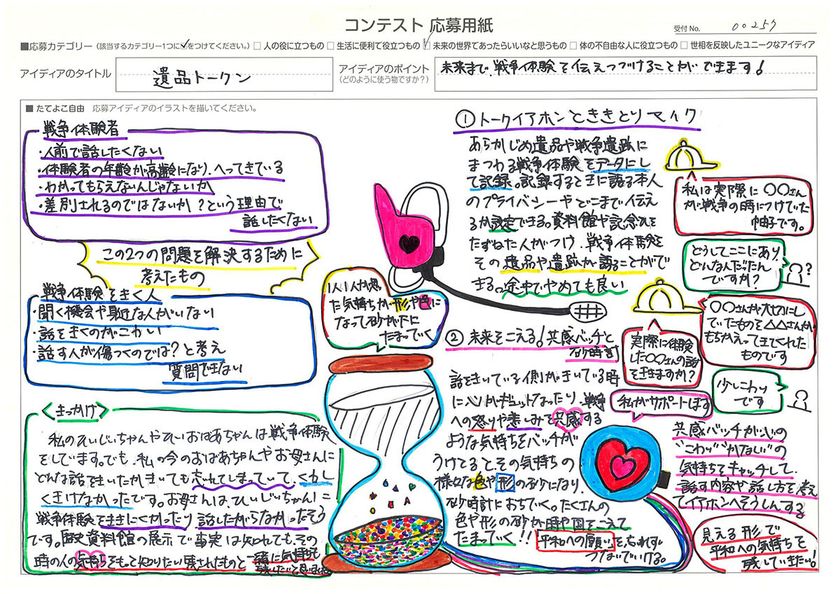 コンテスト 応募用紙
受付No. 00257
■応募カテゴリー（該当するカテゴリー1つに✓をつけてください。） □ 人の役に立つもの □ 生活に便利で役立つもの ☑ 未来の世界であったらいいなと思うもの □ 体の不自由な人に役立つもの □ 世相を反映したユニークなアイディア
アイディアのタイトル
遺品トークン
アイディアのポイント
（どのように使う物ですか？）
未来まで、戦争体験を伝えつづけることができます！
■ たてよこ自由 応募アイディアのイラストを描いてください。
戦争体験者
・人前で話したくない
・体験者の年齢が高齢になり、へってきている
・わかってもらえないんじゃないか
・差別されるのではないか？という理由で
話したくない
この2つの問題を解決するために
考えたもの
戦争体験をきく人
・聞く機会や身近な人がいない
・話をきくのがこわい
・話す人が傷つくのでは？と考え
質問できない
〈きっかけ〉
私のひいじいちゃんやひいおばあちゃんは戦争体験
をしています。でも、私の今のおばあちゃんやお母さんに
どんな話をきいたかきいても忘れてしまっていて、くわし
くきけなかったです。お母さんはひいじいちゃんに
戦争体験をききにくかったり話したがらなかったそう
です。歴史資料館の展示で事実は知れても、その
時の人の気持ちをもって知りたい
1人1人が思っ
た気持ちが形や色に
なって砂が下に
たまっていく
①トークイアホンとききとりマイク
あらかじめ遺品や戦争遺跡に
まつわる戦争体験をデータにし
て記録。記録するときに語る本人
のプライバシーやどこまで伝え
るか設定できる。資料館や記念館を
たずねた人がつけ、戦争体験を
その遺品や遺跡が語ることがで
きる。途中でやめても良い
②未来をこえる！共感バッチと
砂時計
話をきいている側がきいている時
に心がギュッとなったり、戦争
への怒りや悲しみを共感する
ような気持ちをバッチが
うけとるとその気持ちの
様々な色や形の砂になり、
砂時計におちていく。たくさんの
色や形の砂が時や国をこえて
たまっていく！！
平和への願いを忘れずに
つないでいける。
私は実際に〇〇さん
が戦争の時につけていた
帽子です。
どうしてここにあり、
どんなんだったん
ですか？
〇〇さんが大切にし
ていたものを△△さんが
もちかえってきてくれた
ものです
実際に体験
した〇〇さんの話
をききますか？
少しこわい
です
私がサポートします
共感バッチが心の
“こわい”“かなしい”の
気持ちをキャッチして、
話す内容や話し方を考え
てイアホンへそうしんする
見える形で
平和への気持ちを
残していきたい！